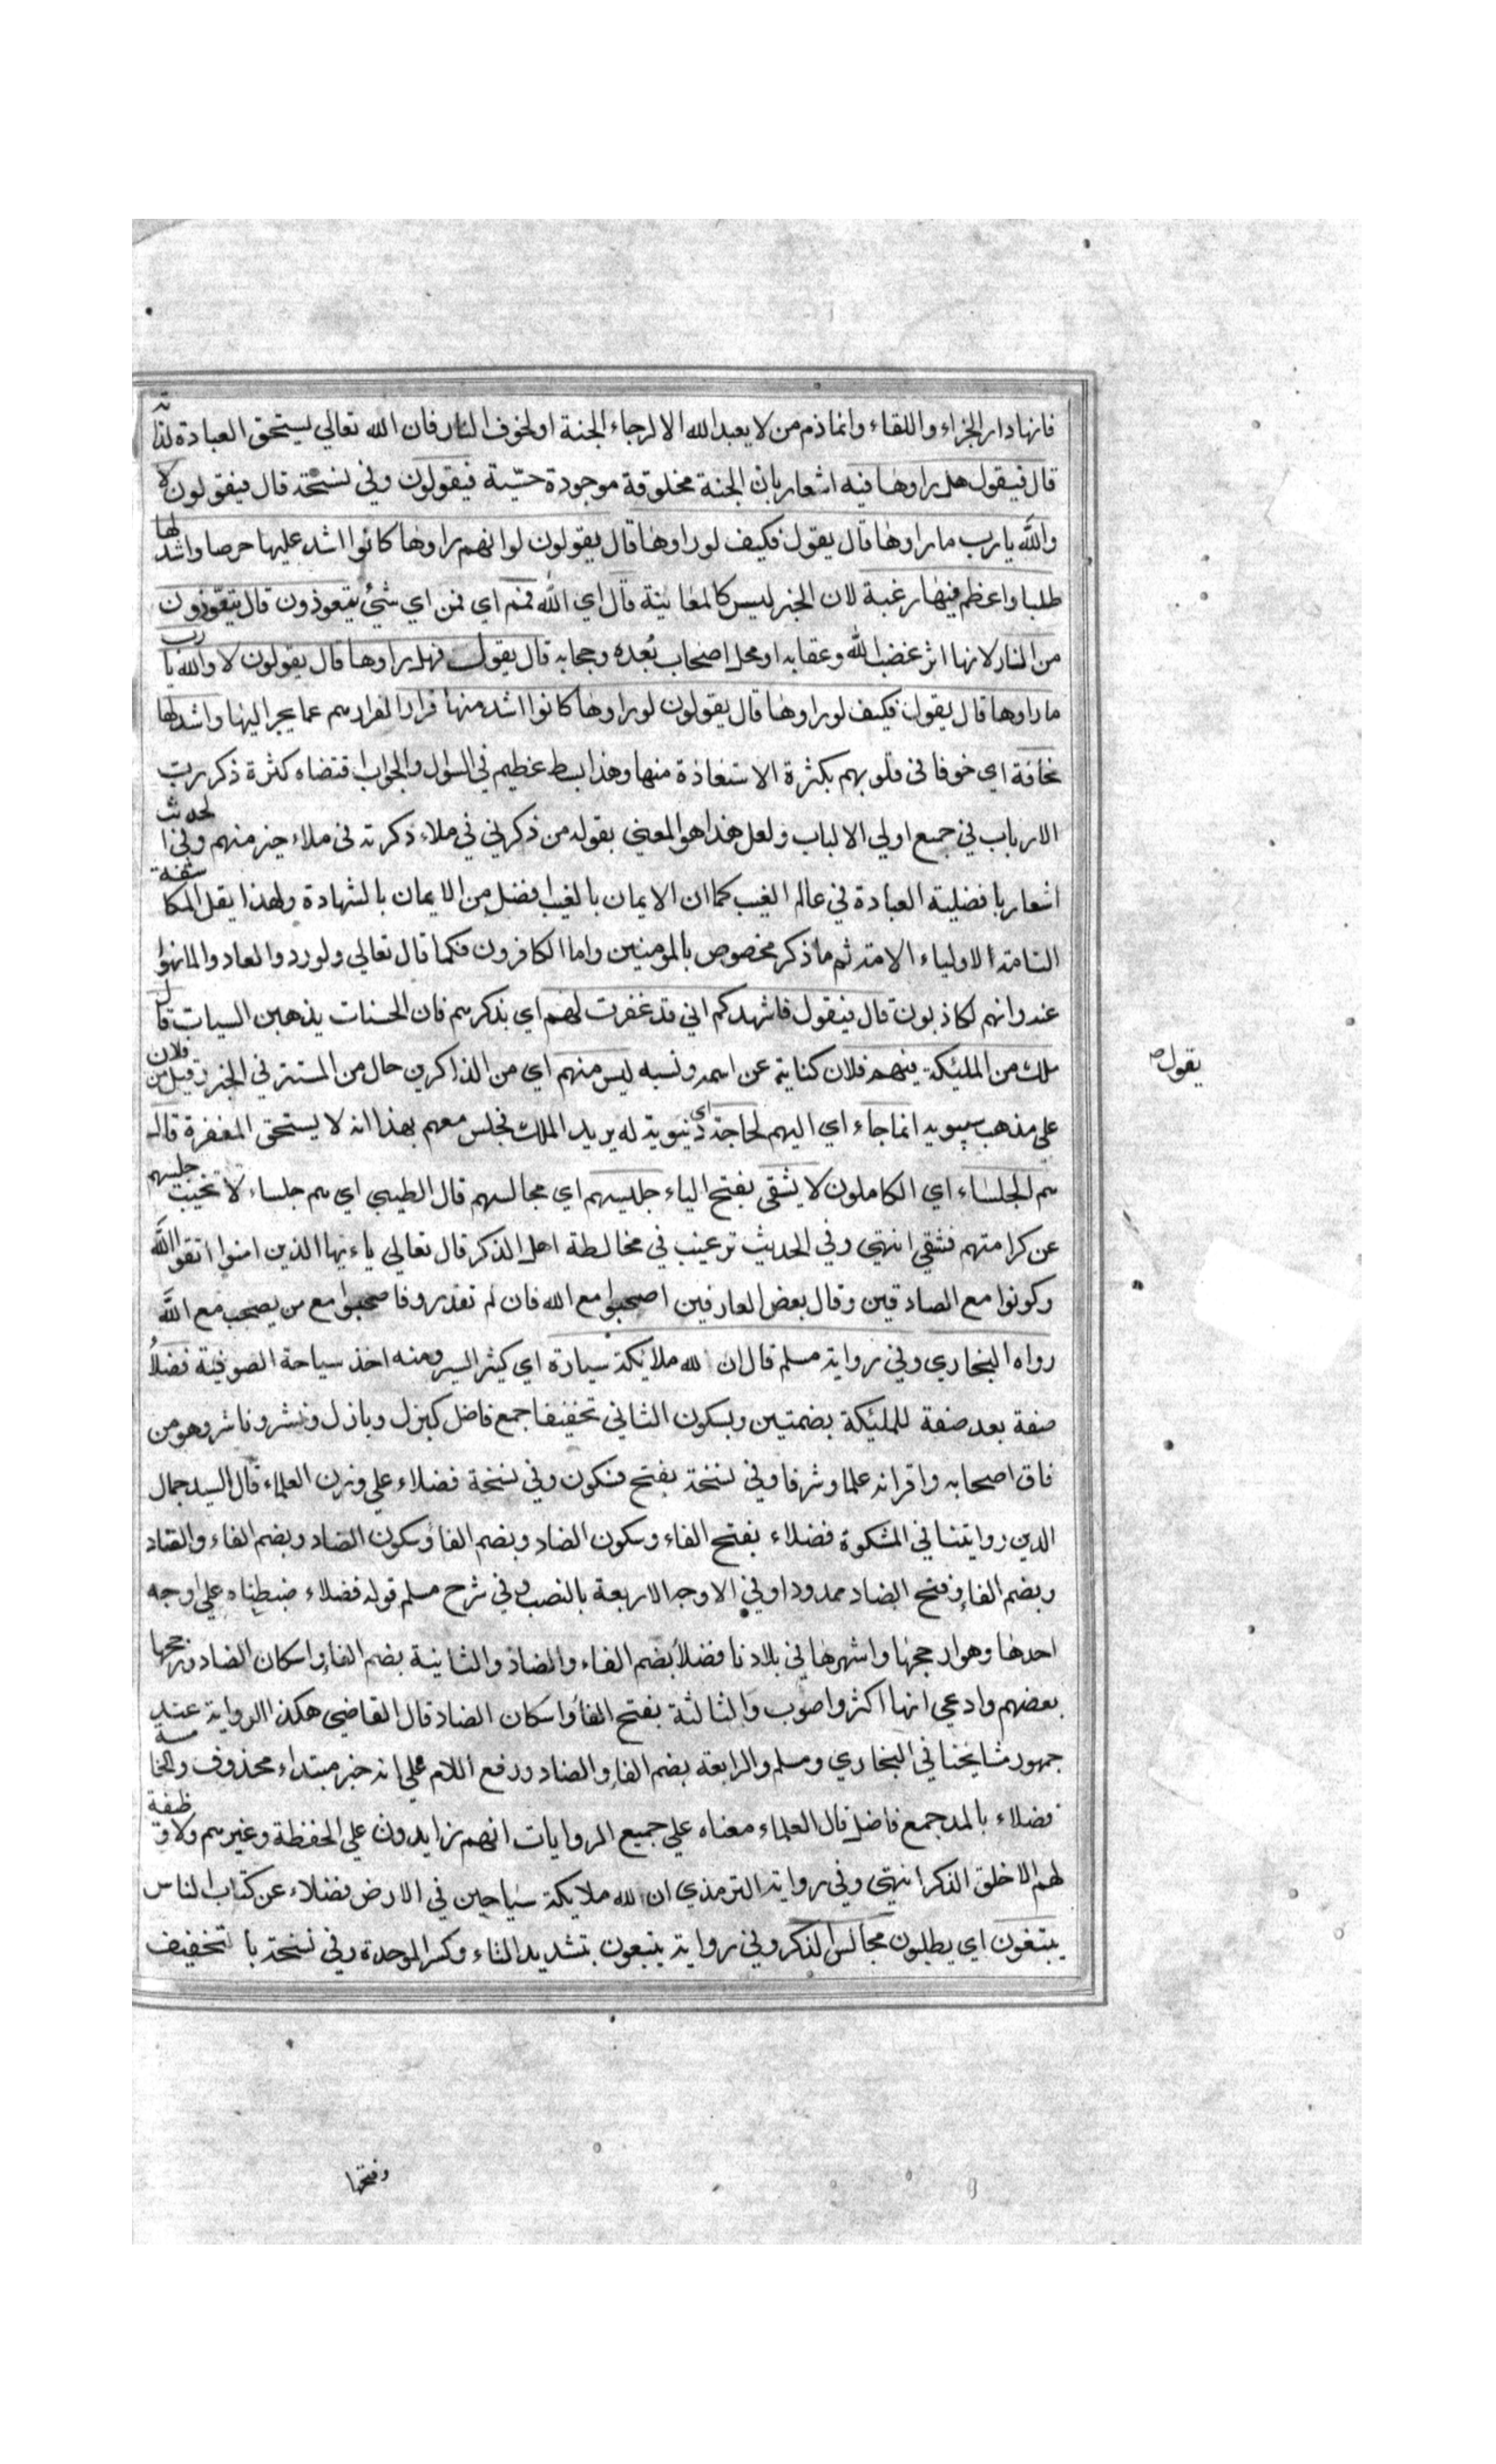 فانها دار الجزاء واللقاء وانما ذم من لا يعبد الله الا لرجاء الجنة او لخوف النار فان الله تعالي يستحق العبادة لذاته
قال فيقول هل راوها فيه اشعار بان الجنة مخلوقة موجودة حسّية فيقولون وفي نسخة قال فيقولون لا
والله يا رب ما راوها قال يقول فكيف لو راوها قال يقولون لو انهم راوها كانوا اشد عليها حرصا واشد لها
طلبا واعظم فيها رغبة لان الخبر ليس كالمعاينة قال اي الله فمم اي فمن اي شئ يتعوذون قال يتعوّذون
من النار لانها اثر غضب الله وعقابه او محل اصحاب بُعده وحجابه قال يقول فهل راوها قال يقولون لا والله يا رب
ما راوها قال يقول فكيف لو راوها قال يقولون لو راوها كانوا اشد منها فرارا لفرارهم عما يجر اليها واشد لها
مخافة اي خوفا في قلوبهم بكثرة الاستعاذة منها وهذا بسط عظيم في السؤال والجواب اقتضاه كثرة ذكر رب
الارباب في جمع اولي الالباب ولعل هذا هو المعني بقوله من ذكرني في ملاء ذكرته في ملاء خير منهم وفي الحديث
اشعار بافضلية العبادة في عالم الغيب كما ان الايمان بالغيب افضل من الايمان بالشهادة ولهذا يقل المكاشفة
التامة لاولياء الامة ثم ما ذكر مخصوص بالمومنين واما الكافرون فكما قال تعالي ولو ردوا لعادوا لما نهوا
عنه وانهم لكاذبون قال فيقول فاشهدكم اني قد غفرت لهم اي بذكرهم فان الحسنات يذهبن السيات قال
يقول صح
ملك من الملئكة فيهم فلان كناية عن اسمه ونسبه ليس منهم اي من الذاكرين حال من المستتر في الخبر وقيل من فلان
علي مذهب سيبويه انما جاء اي اليهم لحاجة اي دنيوية له يريد الملك فجلس معهم بهذا انه لا يستحق المغفرة قال
هم الجلساء اي الكاملون لا يشقي بفتح الياء جليسهم اي مجالسهم قال الطيبي اي هم جلساء لا تخيب جليسهم
عن كرامتهم فشقي انتهي وفي الحديث ترغيب في مخالطة اهل الذكر قال تعالي ياءيها الذين امنوا اتقوا الله
وكونوا مع الصادقين وقال بعض العارفين اصحبوا مع الله فان لم تقدروا فاصحبوا مع من يصحب مع الله
رواه البخاري وفي رواية مسلم قال ان لله ملايكة سيارة اي كثير السير ومنه اخذ سياحة الصوفية فضلاً
صفة بعد صفة للملئكة بضمتين وبسكون الثاني تخفيفا جمع فاضل كبزل وبازل ونشر وناشر وهو من
فاق اصحابه واقرانه علما وشرفا وفي نسخة بفتح فسكون وفي نسخة فضلاء علي وزن العلماء قال السيد جمال
الدين روايتنا في المشكوة فضلاء بفتح الفاء وسكون الضاد وبضم الفاء وسكون الضاد وبضم الفاء والضاد
وبضم الفاء وفتح الضاد ممدودا وفي الاوجه الاربعة بالنصب وفي شرح مسلم قوله فضلاء ضبطناه علي اوجه
احدها وهو ارجحها واشهرها في بلادنا فضلاً بضم الفاء والضاد والثانية بضم الفاء واسكان الضاد ورجحها
بعضهم وادعي انها اكثر واصوب والثالثة بفتح الفاء واسكان الضاد قال القاضي هكذا الرواية عند
جمهور مشايخنا في البخاري ومسلم والرابعة بضم الفاء والضاد ورفع اللام علي انه خبر مبتداء محذوف والخامسة
فضلاء بالمد جمع فاضل قال العلماء معناه علي جميع الروايات انهم زايدون علي الحفظة وغيرهم ولا وظيفة
لهم الا خلق الذكر انتهي وفي رواية الترمذي ان لله ملايكة سياحين في الارض فضلاء عن كتاب الناس
يبتغون اي يطلبون مجالس الذكر وفي رواية يتبعون بتشديد التاء وكسر الموحدة وفي نسخة بالتخفيف
وفتحها